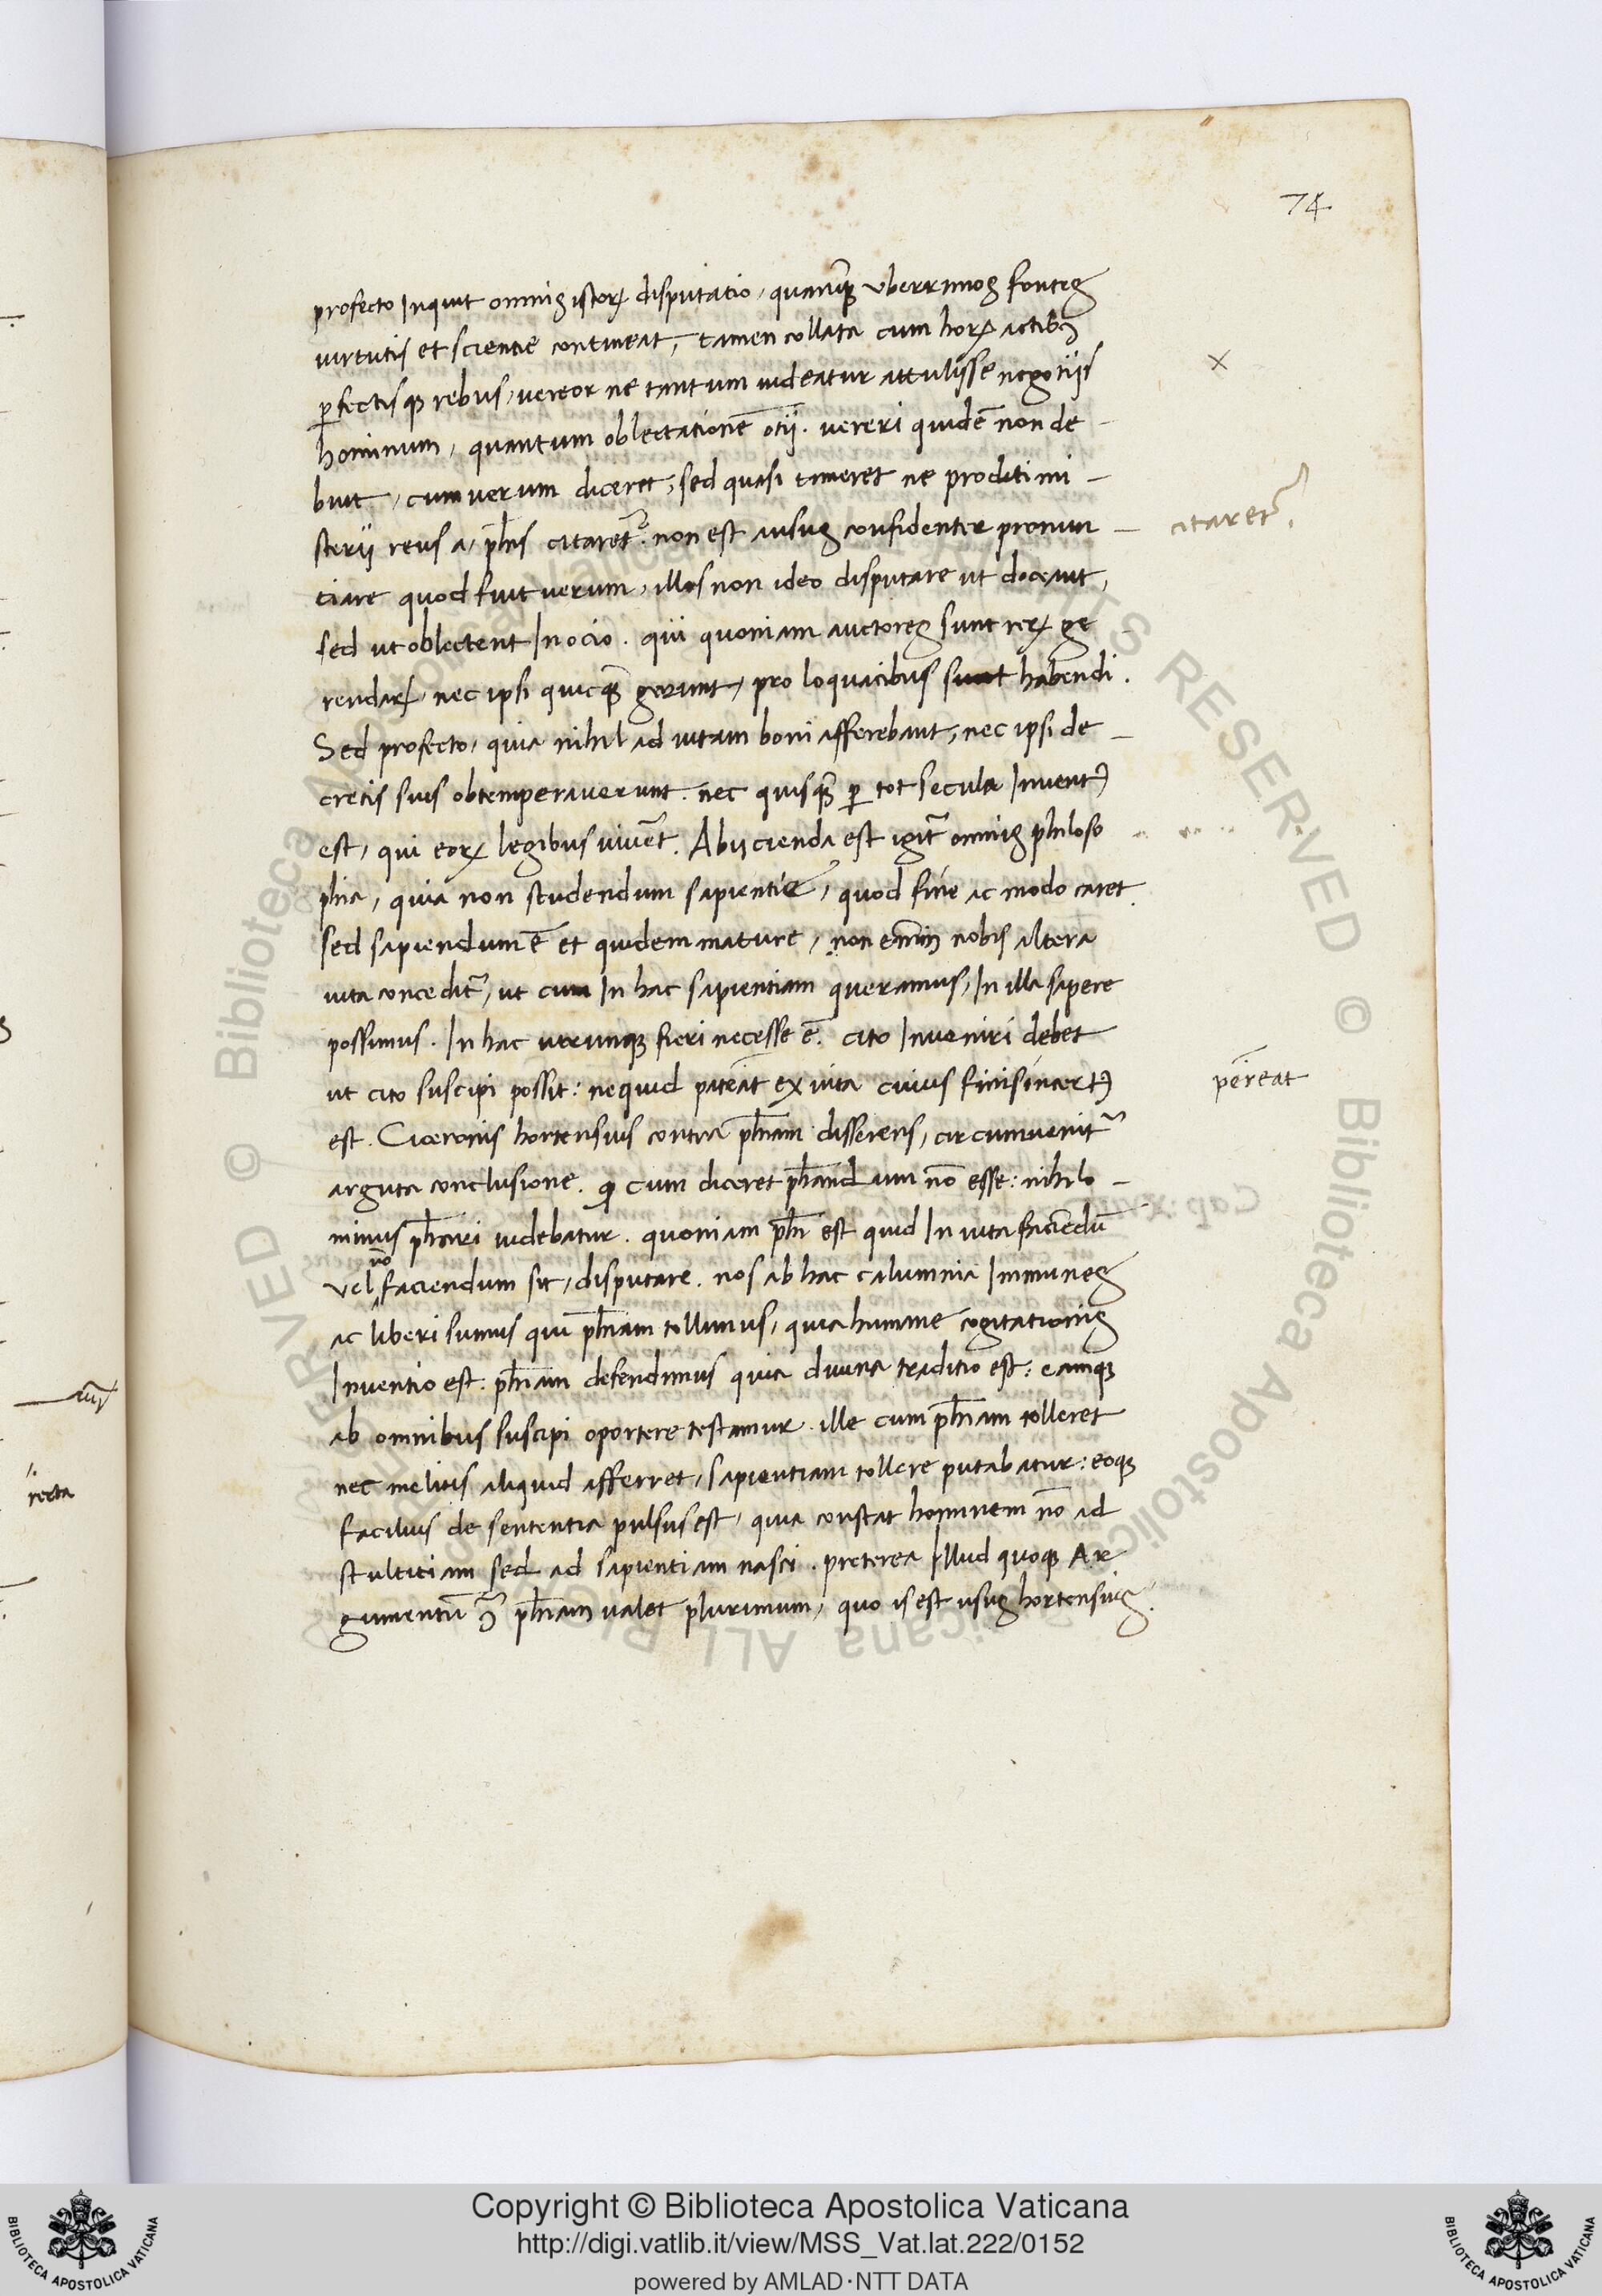 74
profecto Inquit omnis istoꝝ disputatio, quanꝗ̃ uberrimos fontes
uirtutis et scientie contineat, tamen collata cum hoꝝ actibꝰ
ꝑfectisqꝫ rebus, uereor ne tantum uideatur attulisse negotiis
hominum, quantum oblectationẽ otii. uereri quidẽ non de
buit, cum uerum diceret, sed quasi timeret ne proditi mi
sterii reus a, ph̃is citaret᷑. non est ausus confidenter pronun
citaret᷑.
ciare quod fuit uerum, illos non ideo disputare ut doceant,
sed ut oblectent In ocio. qui quoniam auctores sunt reꝝ ge
rendaꝝ, nec ipsi quicꝗ̃ gerunt, pro loquacibus sunt habendi.
Sed profecto, quia nihil ad uitam boni afferebant, nec ipsi de
cretis suis obtemperauerunt. nec quisꝗ̃ ꝑ tot secula Inuentꝰ
est, qui eoꝝ legibus uiuẽt. Abiicienda est igit᷑ omnis philoso
phia, quia non studendum sapientie, quod fine ac modo caret.
sed sapiendum ẽ et quidem mature, non enim nobis altera
uita concedit᷑, ut cum In hac sapientiam queramus, In illa sapere
possimus. In hac utrunqꝫ fieri necesse ẽ. cito Inueniri debet
ut cito suscipi possit: ne quid pareat ex uita cuius finis incertꝰ
pereat
est. Ciceronis hortensius contra ph̃iam disserens, circumuenit᷑
arguta conclusione. ꝙ cum diceret ph̃andum nõ esse: nihilo
minus ph̃ari uidebatur. quoniam ph̃i est quid In uita faciẽdũ
nõ
uel faciendum sit, disputare. nos ab hac calumnia Immunes
ac liberi sumus qui ph̃iam tollimus, quia humane cogitationis
Inuentio est. ph̃iam defendimus quia diuina traditio est: eamqꝫ
ab omnibus suscipi oportere testamur. ille cum ph̃iam tolleret
nec melius aliquid afferret, sapientiam tollere putabatur: eoqꝫ
facilius de sententia pulsus est, quia constat hominem nõ ad
stultitiam sed ad sapientiam nasci. preterea Illud quoqꝫ Ar
gumentũ ꝯ̃ ph̃iam ualet plurimum, quo is est usus hortensius.
recta
Copyright © Biblioteca Apostolica Vaticana
http://digi.vatlib.it/view/MSS_Vat.lat.222/0152
powered by AMLAD·NTT DATA